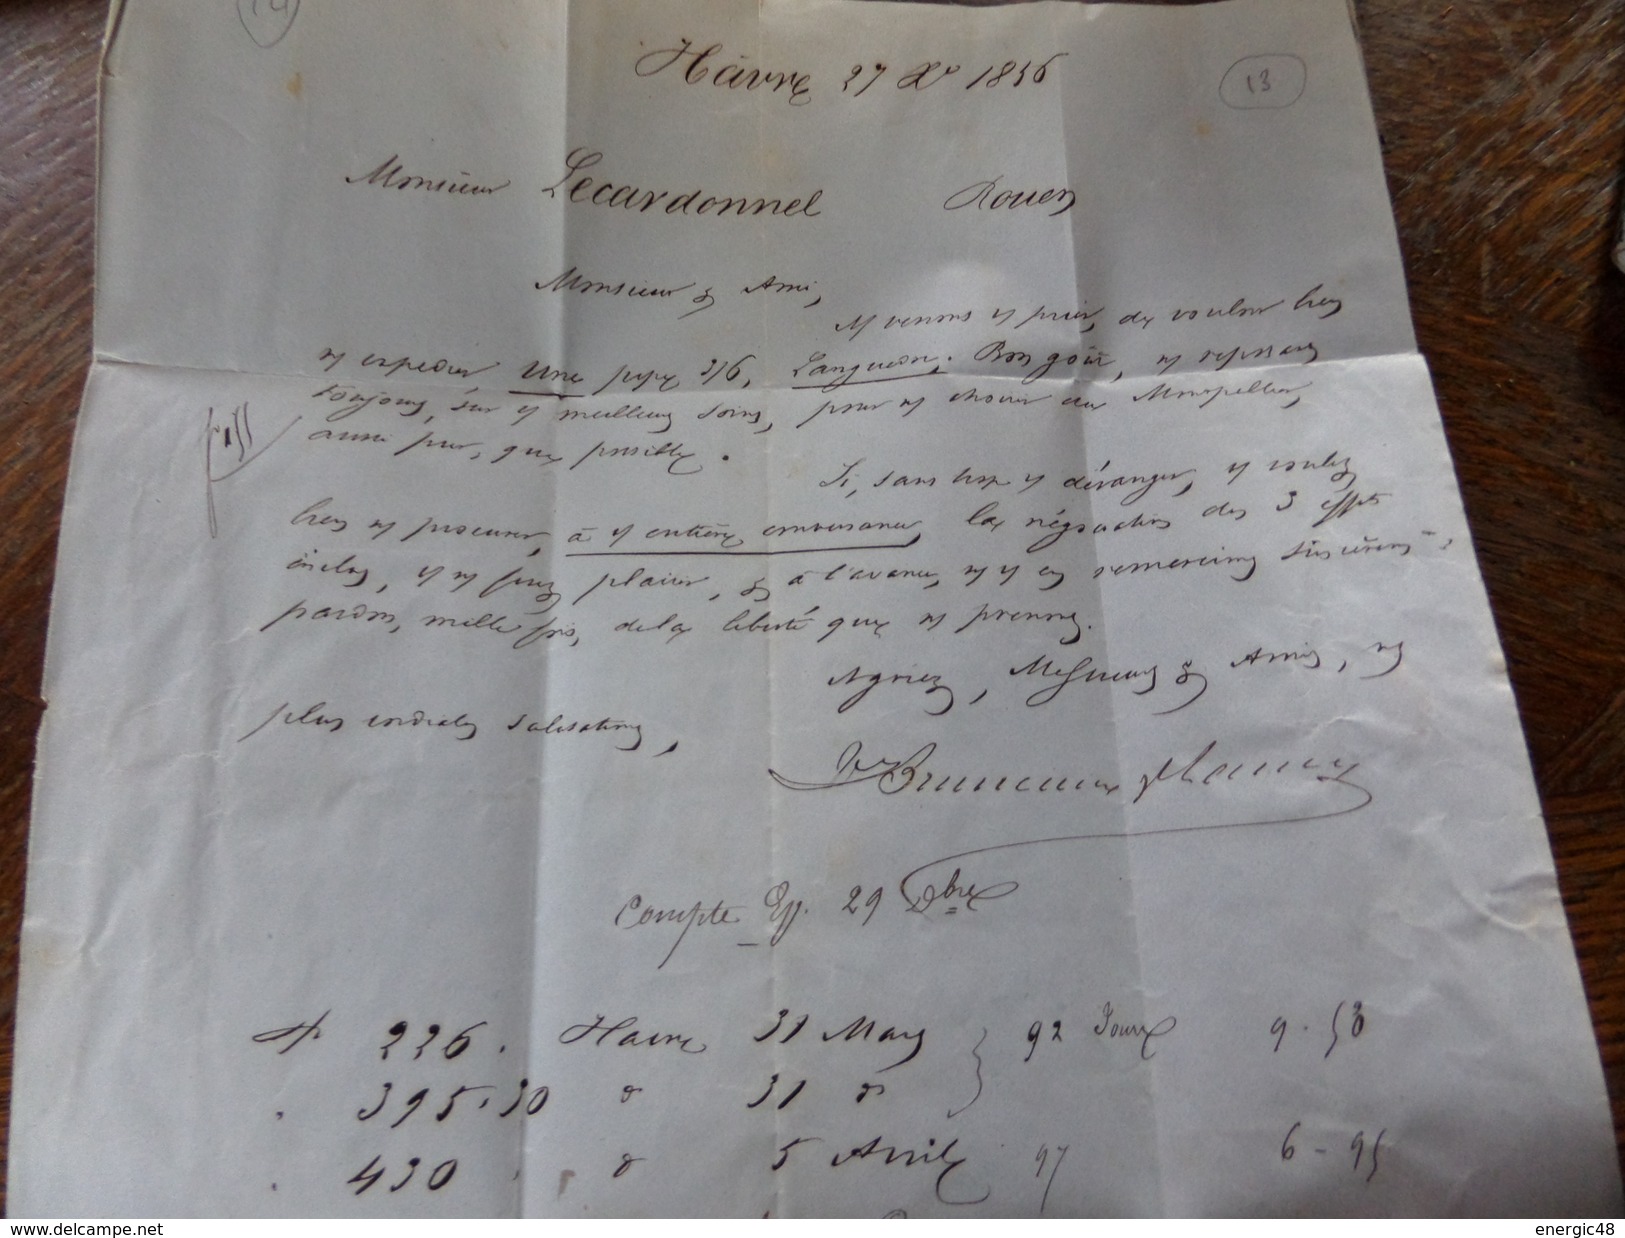 14
Hâvre 27 Xe 1856
13
Monsieur Lecardonnel Rouen
Monsieur & Ami,
N venons v prier, de vouloir bien
ns expédier, Une pipe 3/6, Languedoc. Bon goût, ns reposant
toujours, sur vs meilleurs soins, pour ns choisir du Montpellier,
aussi pur, que possible.
Si, sans trop vs déranger, vs voulez
bien ns procurer, à vs entière convenance, la négociation des 3 effets
inclus, vs ns ferez plaisir, & à l'avance, ns vs en remercions sincèrement:
pardon, mille fois, de la liberté que ns prenons.
Agréez, Messieurs & Amis, ns
plus cordiales salutations,
Compte Eff. 29 Dbre
226. Havre 31 Mars 92 Jours 9.53
395.30 d 31 d
430 d 5 Avril 97 6-95
www.delcampe.net
energic48